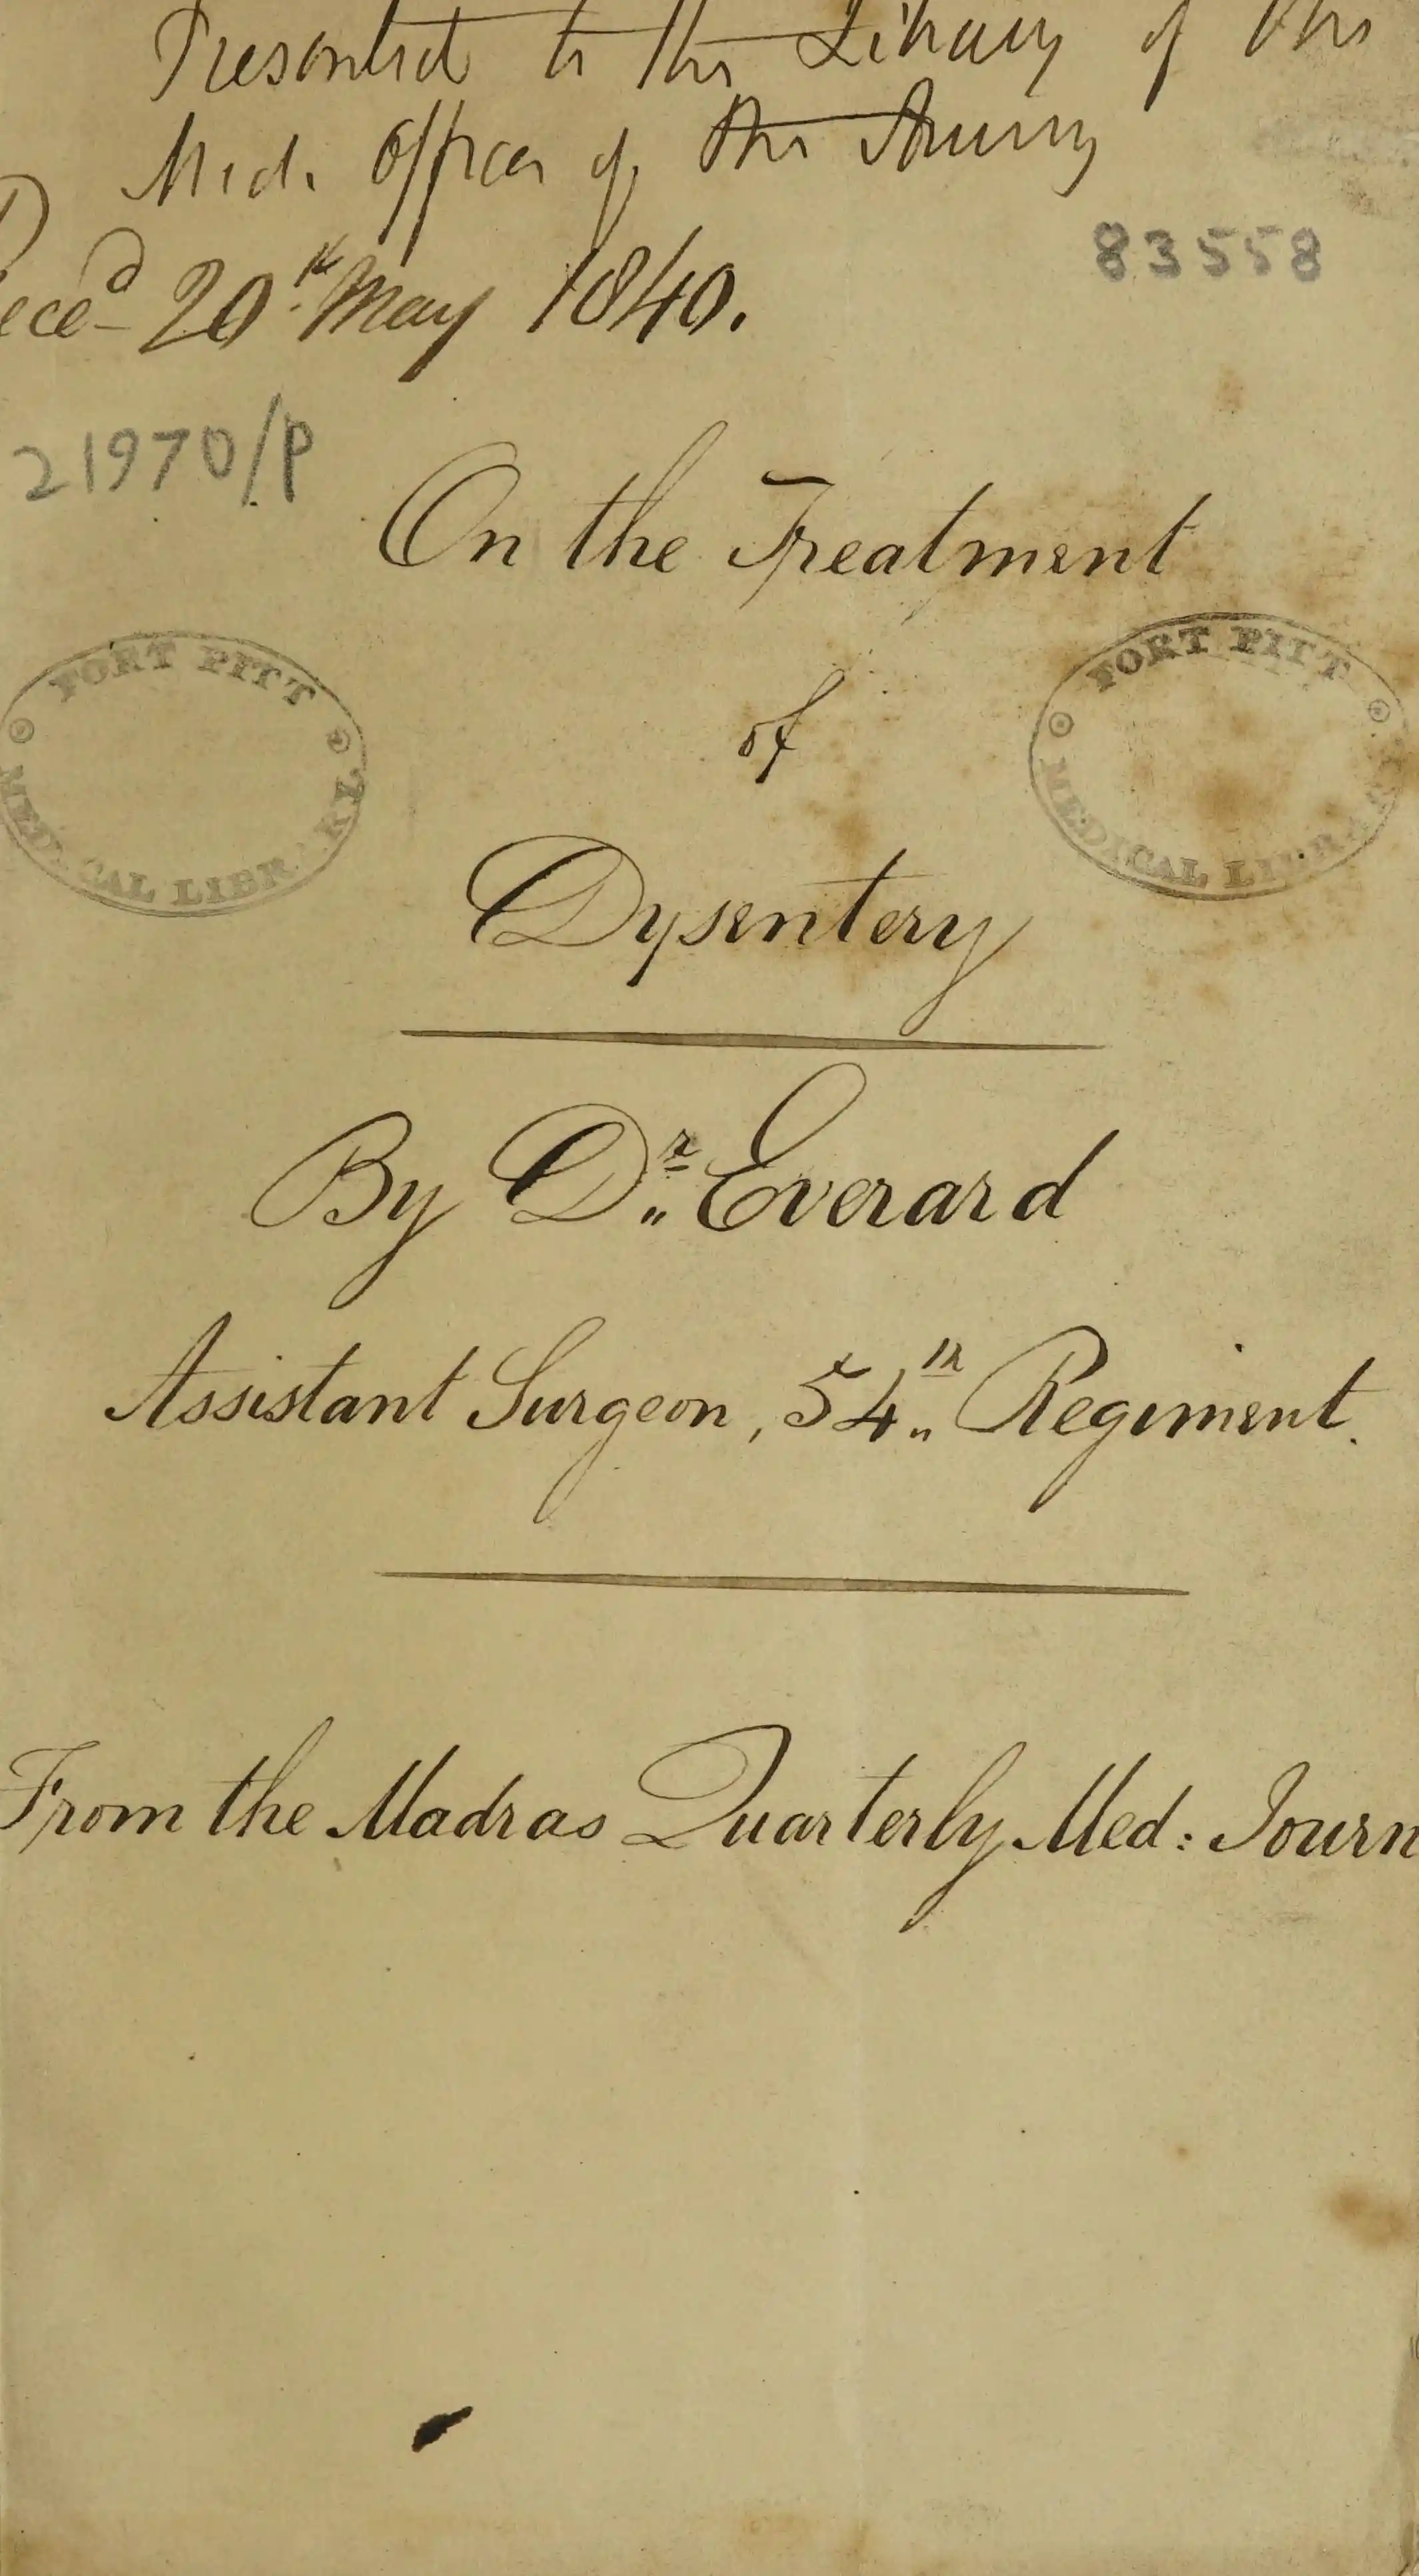 Presented to the Library of the
Med. Officers of the Army
Reced 20th May 1840.
83558
21970/P
On the Treatment
of
Dysentery
FORT PITT
MEDICAL LIBRARY
FORT PITT
MEDICAL LIBRARY
By Dr Everard
Assistant Surgeon, 54th Regiment.
From the Madras Quarterly Med: Journ